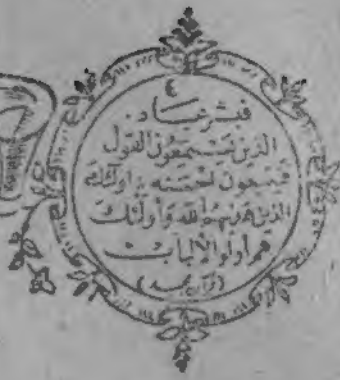 ٤
فبشر عباد
الذين يستمعون القول
فيتبعون احسنه . اولئك
الذين هديهم الله وأولئك
هم اولو الألباب
(قرآن مجيد)